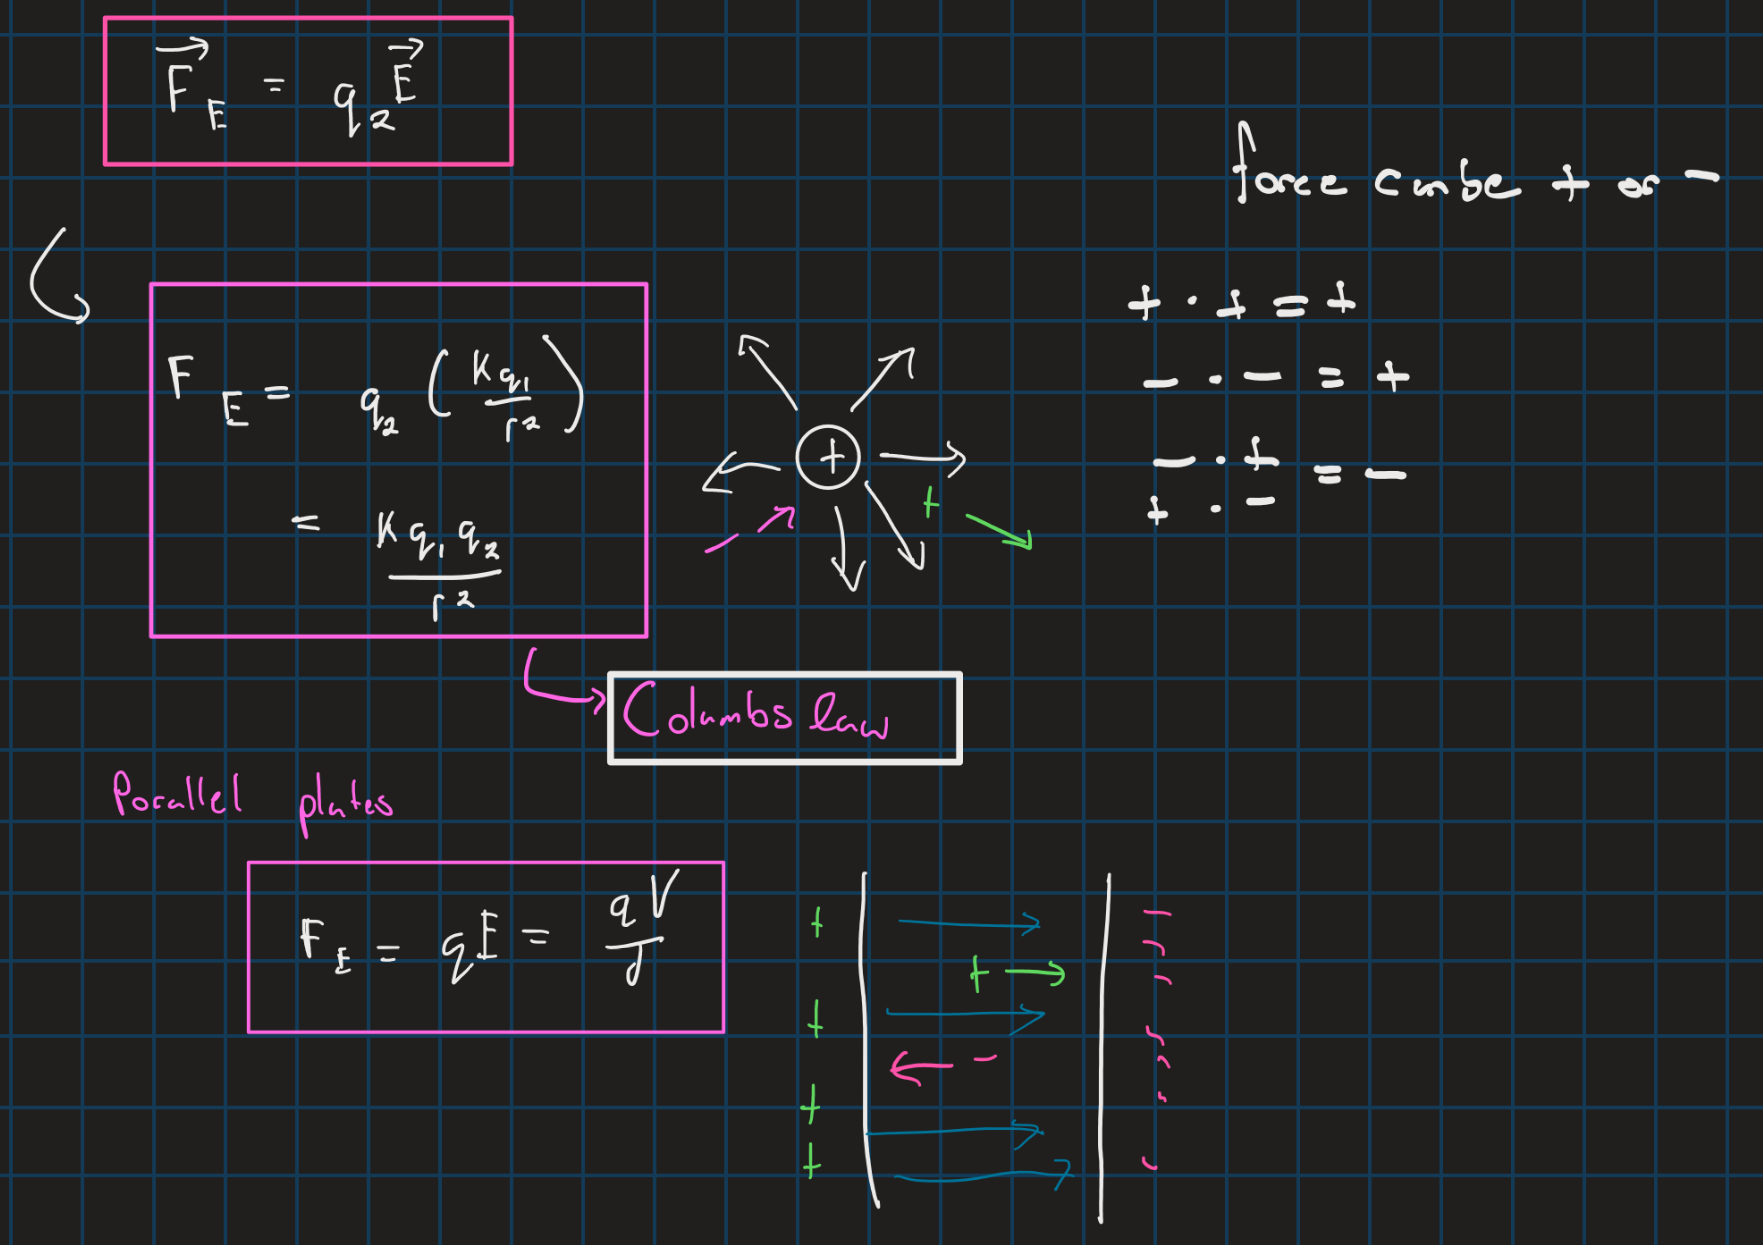 F⃗_E = q_2 E⃗
force can be + or -
F_E = q_2 (kq_1/r^2)
= kq_1q_2/r^2
+ · + = +
- · - = +
- · + = -
+ · -
+
+
Columbs law
Parallel plates
F_E = qE = qV/d
+ -
+ -
-
+ -
- -
+ -
+ -